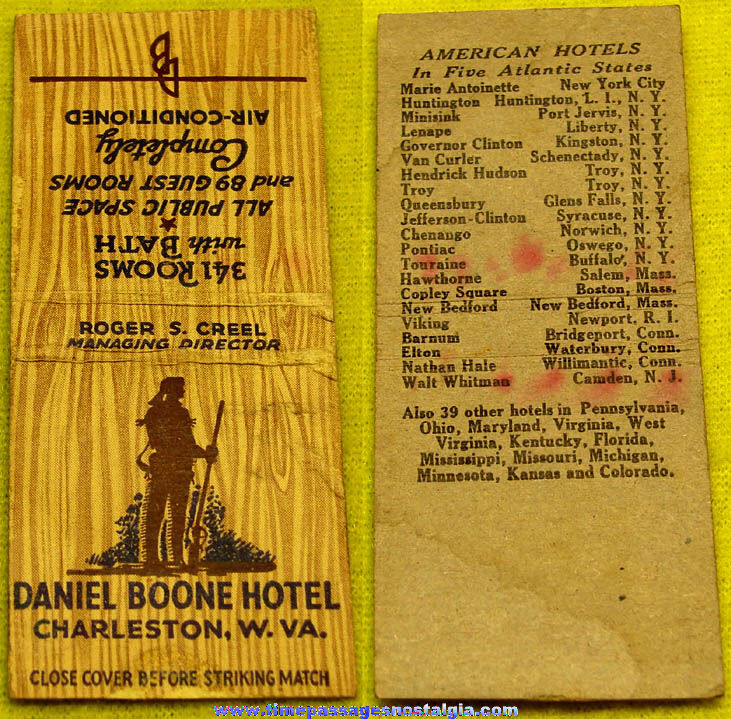 DB
341 ROOMS
with BATH
ALL PUBLIC SPACE
and 89 GUEST ROOMS
Completely
AIR-CONDITIONED
ROGER S. CREEL
MANAGING DIRECTOR
DANIEL BOONE HOTEL
CHARLESTON, W. VA.
CLOSE COVER BEFORE STRIKING MATCH
AMERICAN HOTELS
In Five Atlantic States
Marie Antoinette New York City
Huntington Huntington, L. I., N. Y.
Minisink Port Jervis, N. Y.
Lenape Liberty, N. Y.
Governor Clinton Kingston, N. Y.
Van Curler Schenectady, N. Y.
Hendrick Hudson Troy, N. Y.
Troy Troy, N. Y.
Queensbury Glens Falls, N. Y.
Jefferson-Clinton Syracuse, N. Y.
Chenango Norwich, N. Y.
Pontiac Oswego, N. Y.
Touraine Buffalo, N. Y.
Hawthorne Salem, Mass.
Copley Square Boston, Mass.
New Bedford New Bedford, Mass.
Viking Newport, R. I.
Barnum Bridgeport, Conn.
Elton Waterbury, Conn.
Nathan Hale Willimantic, Conn.
Walt Whitman Camden, N. J.
Also 39 other hotels in Pennsylvania,
Ohio, Maryland, Virginia, West
Virginia, Kentucky, Florida,
Mississippi, Missouri, Michigan,
Minnesota, Kansas and Colorado.
www.timepassagesnostalgia.com